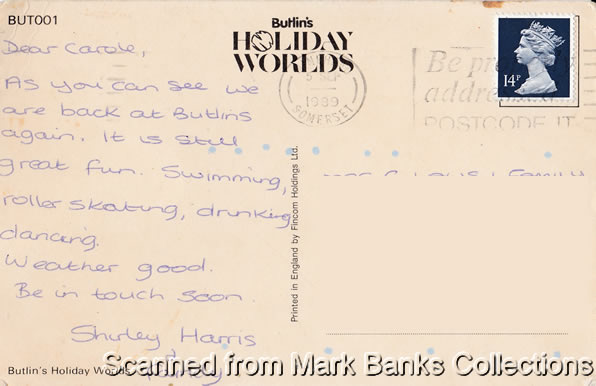 BUT001
Butlin's
HOLIDAY
WORLDS
14P
5 SEP
1989
SOMERSET
Be
POSTCODE IT
Dear Carole,
As you can see we
are back at Butlins
again. It is still
great fun. Swimming,
roller skating, drinking
dancing.
Weather good.
Be in touch soon.
Shirley Harris
Printed in England by Fincom Holdings Ltd.
Butlin's Holiday Worlds
Scanned from Mark Banks Collections